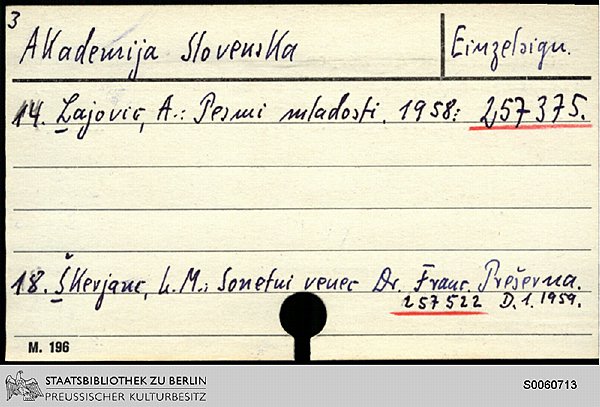 3
Akademija Slovenska Einzelsign.
14. Lajovic, A.: Pesmi mladosti. 1958: 257375.
18. Škerjanc, L.M.: Sonetni venec Dr. Franc. Prešerna.
257522 D.1.1959.
M. 196
STAATSBIBLIOTHEK ZU BERLIN
PREUSSISCHER KULTURBESITZ
S0060713